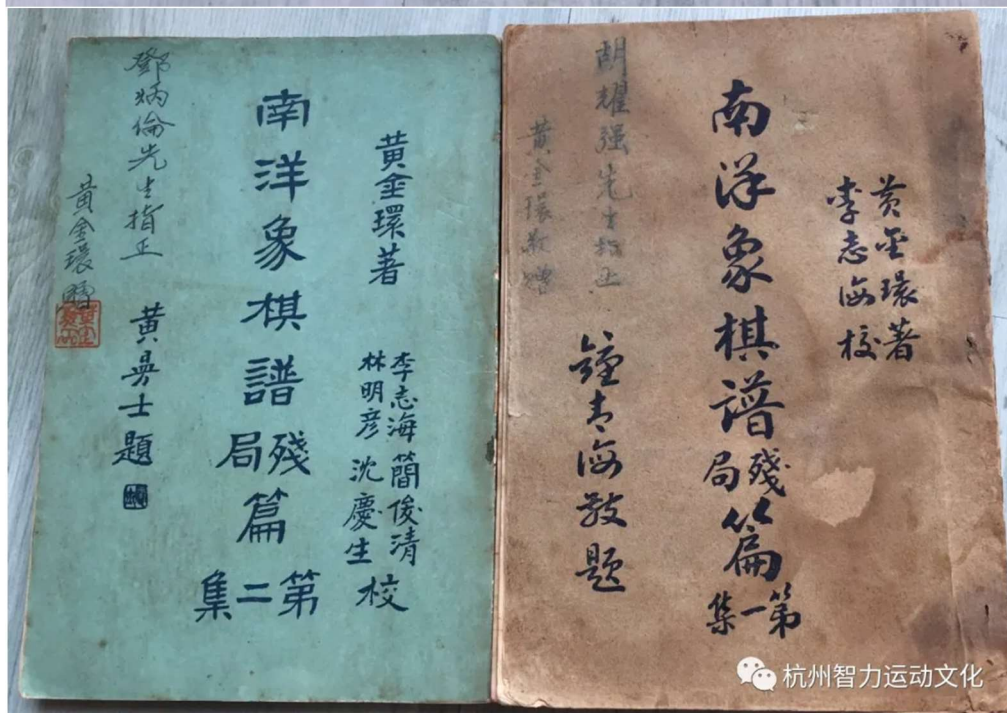 黄金環著
李志海 簡俊清
林明彦 沈慶生 校
南洋象棋譜
殘局篇
第二集
黄勇士題
鄧炳倫先生指正
黄金環贈
黄金環著
李志海校
南洋象棋谱
殘局篇
第一集
鐘青海敬題
胡耀强先生指正
黄金環敬贈
杭州智力运动文化